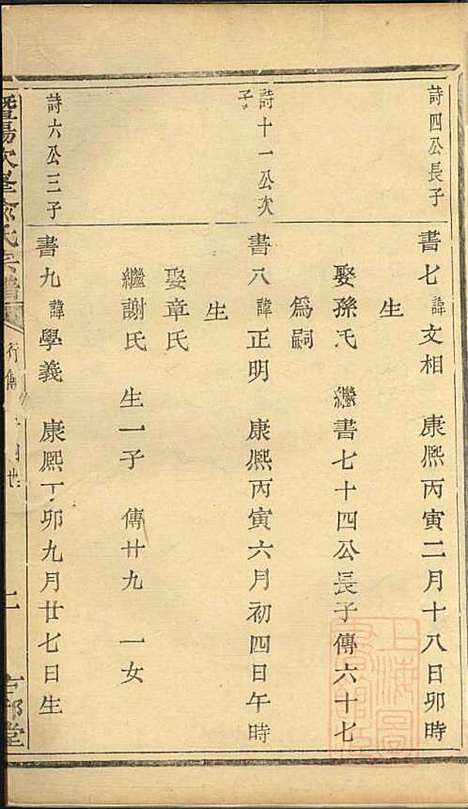 詩四公長子
書七諱文相　康熙丙寅二月十八日卯時
生
娶孫氏　繼書七十四公長子傳六十七
爲嗣
詩十一公次
子
書八諱正明　康熙丙寅六月初四日午時
生
娶章氏
繼謝氏　生一子　傳廿九　一女
詩六公三子
書九諱學義　康熙丁卯九月廿七日生
暨陽次峯俞氏宗譜
行傳
堂